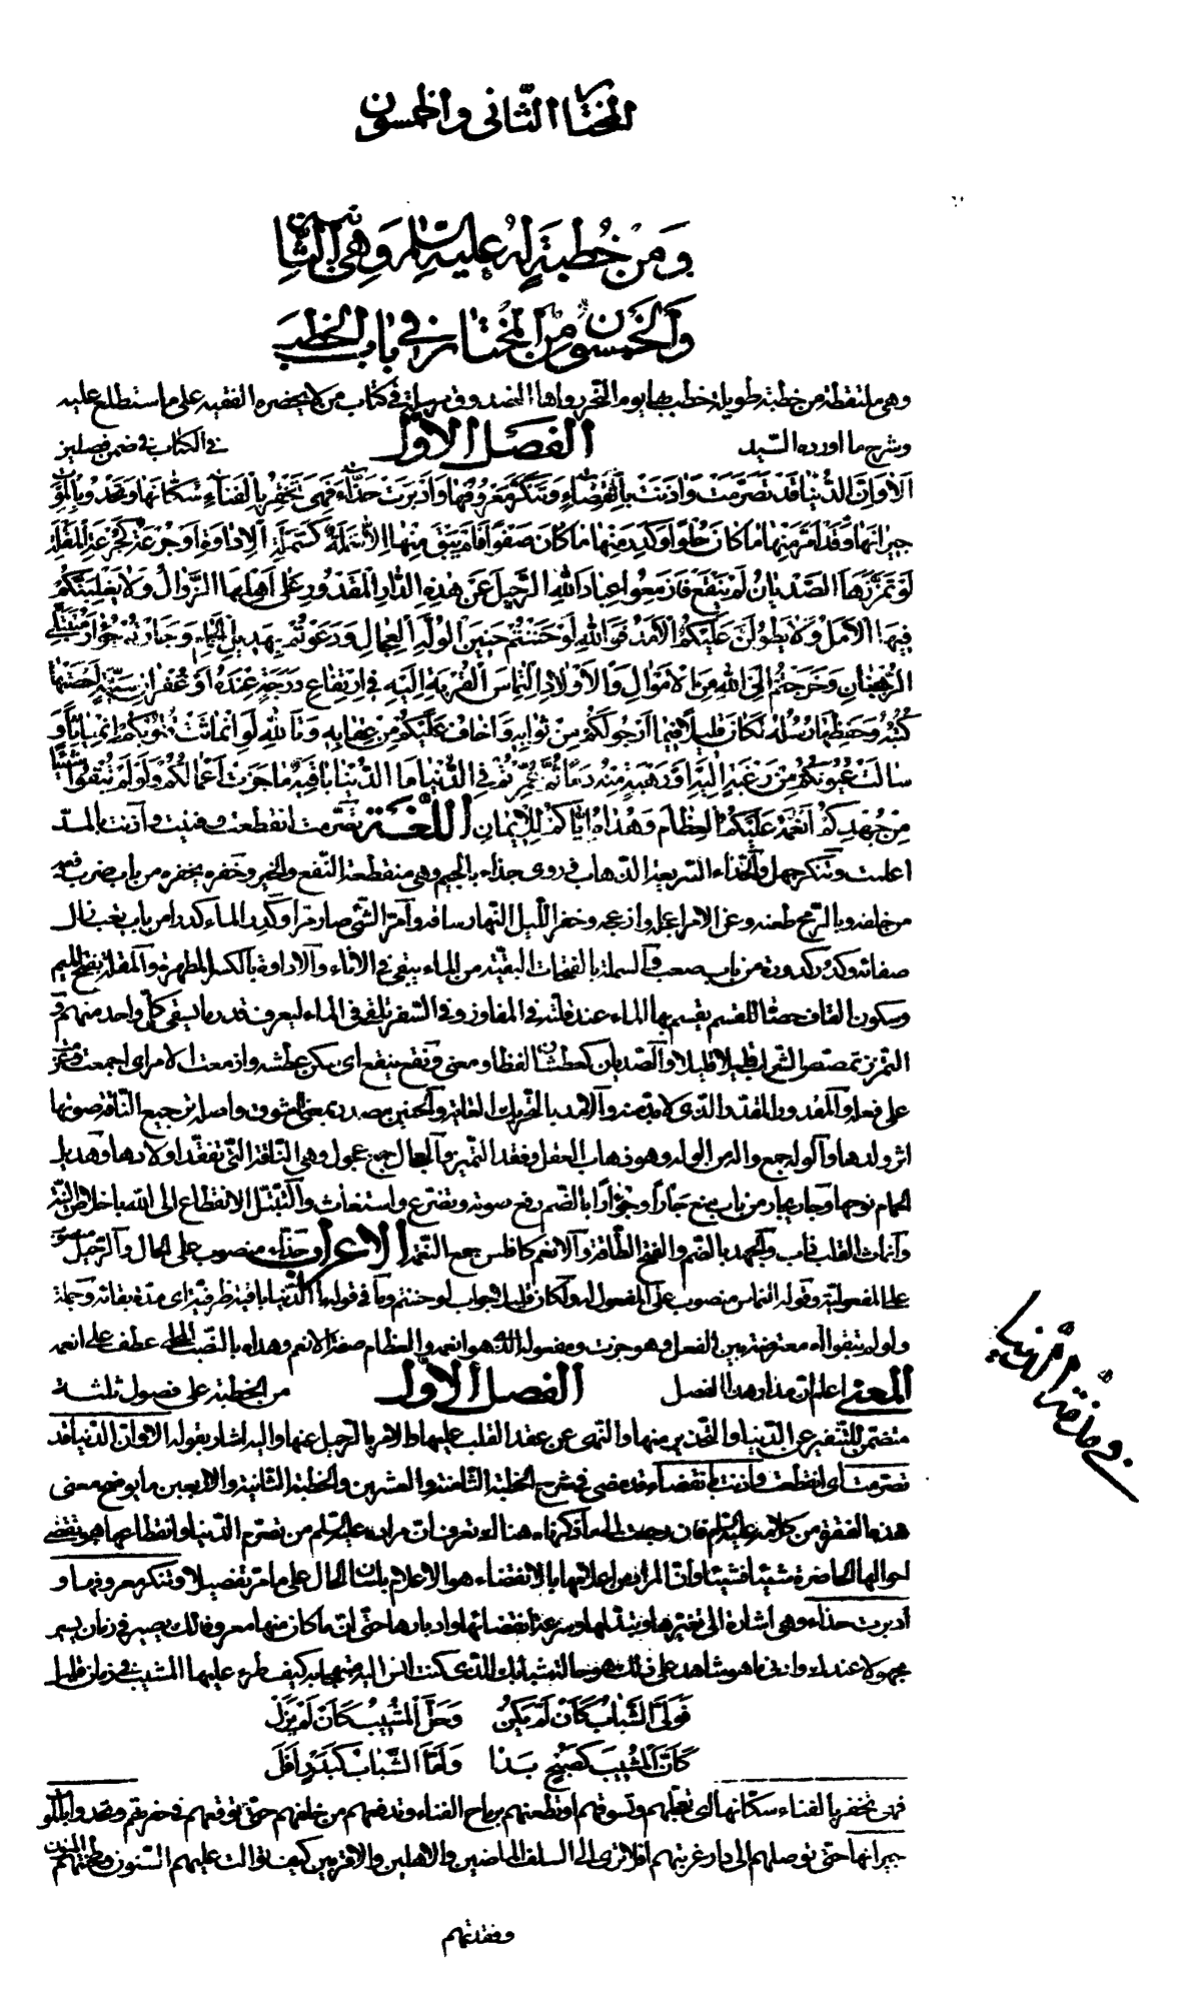 المختار الثانى والخمسون
وَمِنْ خُطْبَةٍ لَهُ عَلَيْهِ السَّلامُ وَهِيَ الثّانِيَة
وَالْخَمْسُونَ مِنَ الْمُخْتارِ في بابِ الْخُطَبِ
وهى ملتقطة من خطبة طويلة خطب بها يوم النّحر رواها الصّدوق مرسلة فى كتاب من لا يحضره الفقيه على ما ستطلع عليه
وشرح ما أورده السّيد فى الكتاب فى ضمن فصلين
الفصل الاوّل
اَلا وَاِنَّ الدُّنْيا قَدْ تَصَرَّمَتْ وَاذَنَتْ بِانْقِضاءٍ وَتَنَكَّرَ مَعْرُوفُها وَاَدْبَرَتْ حَذّاءَ فَهِيَ تَحْفِزُ بِالْفَناءِ سُكّانَها وَتَحْدُو بِالْمَوْتِ
جيرانَها وَقَدْ اَمَرَّ مِنْها ما كانَ حُلْوًا وَكَدِرَ مِنْها ما كانَ صَفْوًا فَلَمْ يَبْقَ مِنْها اِلّا سَمَلَةٌ كَسَمَلَةِ الْاِداوَةِ اَوْ جُرْعَةٌ كَجُرْعَةِ الْمَقْلَةِ
لَوْ تَمَزَّزَهَا الصَّدْيانُ لَمْ يَنْقَعْ فَاَزْمِعُوا عِبادَ اللهِ الرَّحيلَ عَنْ هذِهِ الدّارِ الْمَقْدُورِ عَلى اَهْلِهَا الزَّوالُ وَلا يَغْلِبَنَّكُمْ
فيهَا الْاَمَلُ وَلا يَطُولَنَّ عَلَيْكُمُ الْاَمَدُ فَوَاللهِ لَوْ حَنَنْتُمْ حَنينَ الْوُلَّهِ الْعِجالِ وَدَعَوْتُمْ بِهَديلِ الْحَمامِ وَجَاَرْتُمْ جُؤارَ مُتَبَتِّلِي
الرُّهْبانِ وَخَرَجْتُمْ اِلَى اللهِ مِنَ الْاَمْوالِ وَالْاَوْلادِ الْتِماسَ الْقُرْبَةِ اِلَيْهِ في ارْتِفاعِ دَرَجَةٍ عِنْدَهُ اَوْ غُفْرانِ سَيِّئَةٍ اَحْصَتْها
كُتُبُهُ وَحَفِظَها رُسُلُهُ لَكانَ قَليلًا فيما اَرْجُو لَكُمْ مِنْ ثَوابِهِ وَاَخافُ عَلَيْكُمْ مِنْ عِقابِهِ وَتَاللهِ لَوِ انْماثَتْ قُلُوبُكُمُ انْمِياثًا وَ
سالَتْ عُيُونُكُمْ مِنْ رَغْبَةٍ اِلَيْهِ اَوْ رَهْبَةٍ مِنْهُ دَمًا ثُمَّ عُمِّرْتُمْ فِي الدُّنْيا مَا الدُّنْيا باقِيَةٌ ما جَزَتْ اَعْمالُكُمْ وَلَوْ لَمْ تُبْقُوا شَيْئًا
مِنْ جُهْدِكُمْ اَنْعُمَهُ عَلَيْكُمُ الْعِظامَ وَهُداهُ اِيّاكُمْ لِلْاِيمانِ اللُّغَة تصرّمت انقطعت وفنيت وآذنت بالمدّ
اعلمت وتنكّر جهل والحذّاء السّريعة الذّهاب وروى جذّاء بالجيم وهى منقطعة النّفع والخير وحفزه يحفزه من باب ضرب دفعه
من خلفه وبالرّمح طعنه وعن الامر اعجله وازعجه وحفز اللّيل النّهار ساقه وأمرّ الشّىء صار مرّا وكدر الماء كدرا من باب تعب زال
صفائه وكدر كدورة من باب صعب والسملة بالفتحات البقيّة من الماء يبقى فى الاناء والاداوة بالكسر المطهرة والمقلة بفتح الميم
وسكون القاف حصاة للقسم يقسم بها الماء عند قلّته فى المفاوز وفى السّفر تلقى فى الماء ليعرف قدر ما يسقى كلّ واحد منهم و
التمزز تمصّص الشّراب قليلا قليلا والصّديان كعطشان لفظا ومعنى ونقع ينقع اى سكن عطشه وازمعت الامر اى اجمعت وعزمت
على فعله والمقدور المقدّر الّذى لا بدّ منه والامد بالتّحريك الغاية والحنين مصدر بمعنى الشوق واصله ترجيع النّاقة صوتها
اثر ولدها والولّه جمع واله من الوله وهو ذهاب العقل وفقد التّميز والعجال جمع عجول وهى النّاقة الّتى تفقد اولادها وهديل
الحمام نوحها وجأر يجأر من باب منع جأرا وجؤارا بالضّم رفع صوته وتضرّع واستغاث والتّبتّل الانقطاع الى الله باخلاص النيّة
وانماث القلب ذاب والجهد بالضّم والفتح الطّاقة والانعم كافلس جمع النّعمة الاعراب وحذّاء منصوب على الحال والرّحيل منصوب
على المفعوليّة وقوله التماس منصوب على المفعول له ولكان قليلا جواب لو حننتم وما فى قوله ما الدّنيا باقية ظرفيّة اى مدّة بقائه وجملة
ولو لم تبقوا اه معترضة بين الفعل وهو جزت ومفعوله الّذى هو انعمه والعظام صفة الانعم وهداه بالنّصب المحلّى عطف على انعمه
المعنى اعلم انّ مدار هذا الفصل من الخطبة على فصول ثلثة
الفصل الاوّل
متضمّن للتّنفير عن الدّنيا والتّحذير منها والنّهى عن عقد القلب عليها والامر بالرّحيل عنها واليه اشار بقوله الا وانّ الدّنيا قد
تصرّمت اى انقطعت واذنت بانقضاء قد مضى فى شرح الخطبة الثّامنة والعشرين والخطبة الثّانية والاربعين ما يوضح معنى
هذه الفقرة من كلامه عليه السّلام فان رجعت الى ما ذكرناه هنالك تعرف انّ مراده عليه السّلم من تصرّم الدّنيا وانقطاعها هو تقضّى
احوالها الحاضرة شيئا فشيئا وانّ المراد من اعلامها بالانقضاء هو الاعلام بلسان الحال على ما مرّ تفصيلا وتنكّر معروفها و
أدبرت حذّاء وهى اشارة الى تغيّرها وتبدّلها وسرعة انقضائها وادبارها حتّى انّ ما كان منها معروفا لك يصير فى زمان يسير
مجهولا عندك وادنى ما هو شاهد على ذلك هو حالة شبابك الّذى كنت انس اليه وبها به كيف طرء عليها المشيب فى زمان قليل
فَوَلَّى الشَّبابُ كَاَنْ لَمْ يَكُنْ وَحَلَّ الْمَشيبُ كَاَنْ لَمْ يَزَلْ
كَاَنَّ الْمَشيبَ كَصُبْحٍ بَدا وَاَمَّا الشَّبابُ كَبَدْرٍ اَفَلَ
فهى تحفز بالفناء سكّانها اى تعجّلهم وتسوقهم او تطعنهم برماح الفناء وتدفعهم من خلفهم حتّى توقعهم فى حفرتهم وتحدو بالموت
جيرانها حتّى توصلهم الى دار غربتهم افلا ترى الى السلف الماضين والاهلين والاقربين كيف توالت عليهم السّنون وطحنتهم المنون
وفقدتهم
فى مذمّة الدّنيا